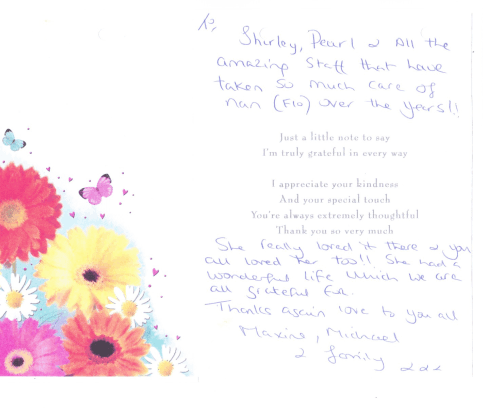 To,
Shirley, Pearl & All the
amazing Staff that have
taken so much care of
nan (Flo) over the years!!
Just a little note to say
I'm truly grateful in every way
I appreciate your kindness
And your special touch
You're always extremely thoughtful
Thank you so very much
She really loved it there & you
all loved her too!! She had a
wonderful life which we are
all grateful for.
Thanks again love to you all
Maxine, Michael
& family